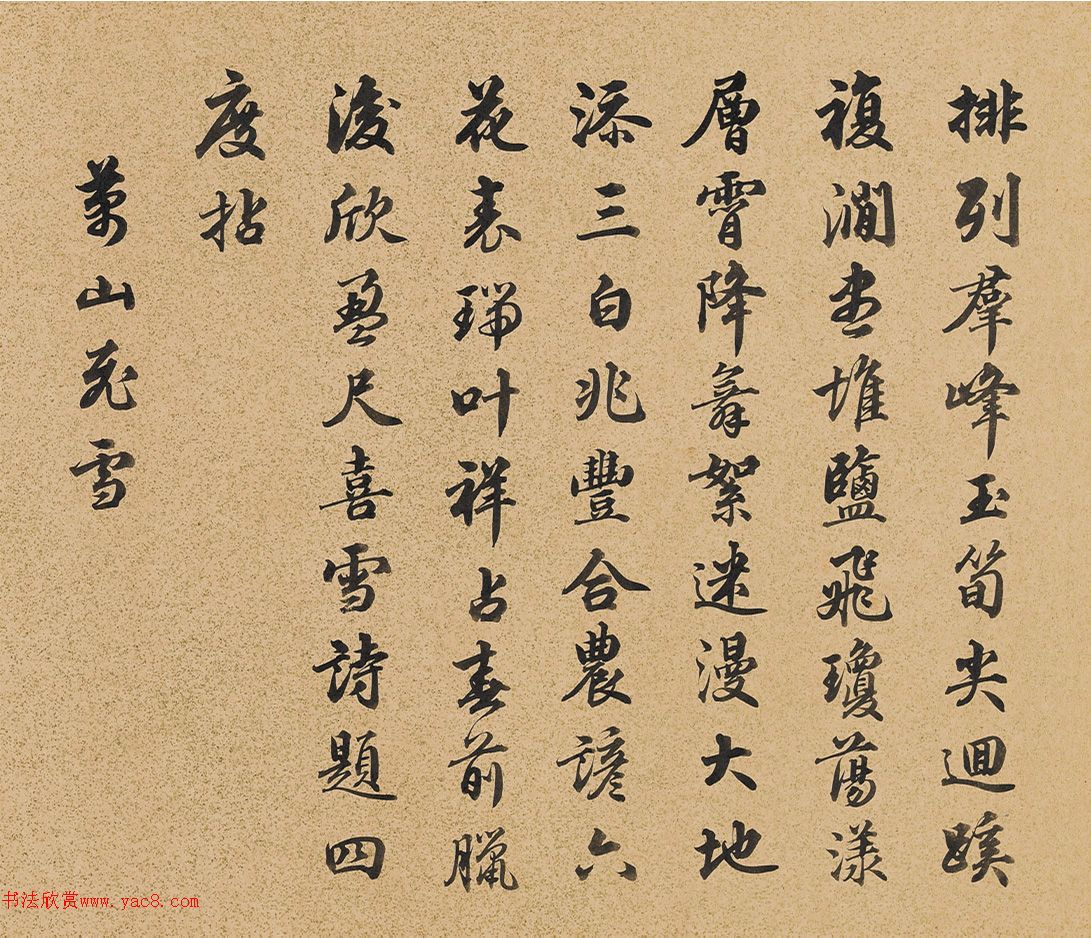 排列羣峰玉筍尖迴蹊
複澗盡堆鹽飛瓊蕩漾
層霄降舞絮迷漫大地
添三白兆豐合農諺六
花表瑞叶祥占春前臘
後欣盈尺喜雪詩題四
度拈
萬山飛雪
书法欣赏www.yac8.com